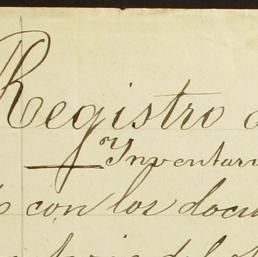 Registro
Inventari
con los docu
del